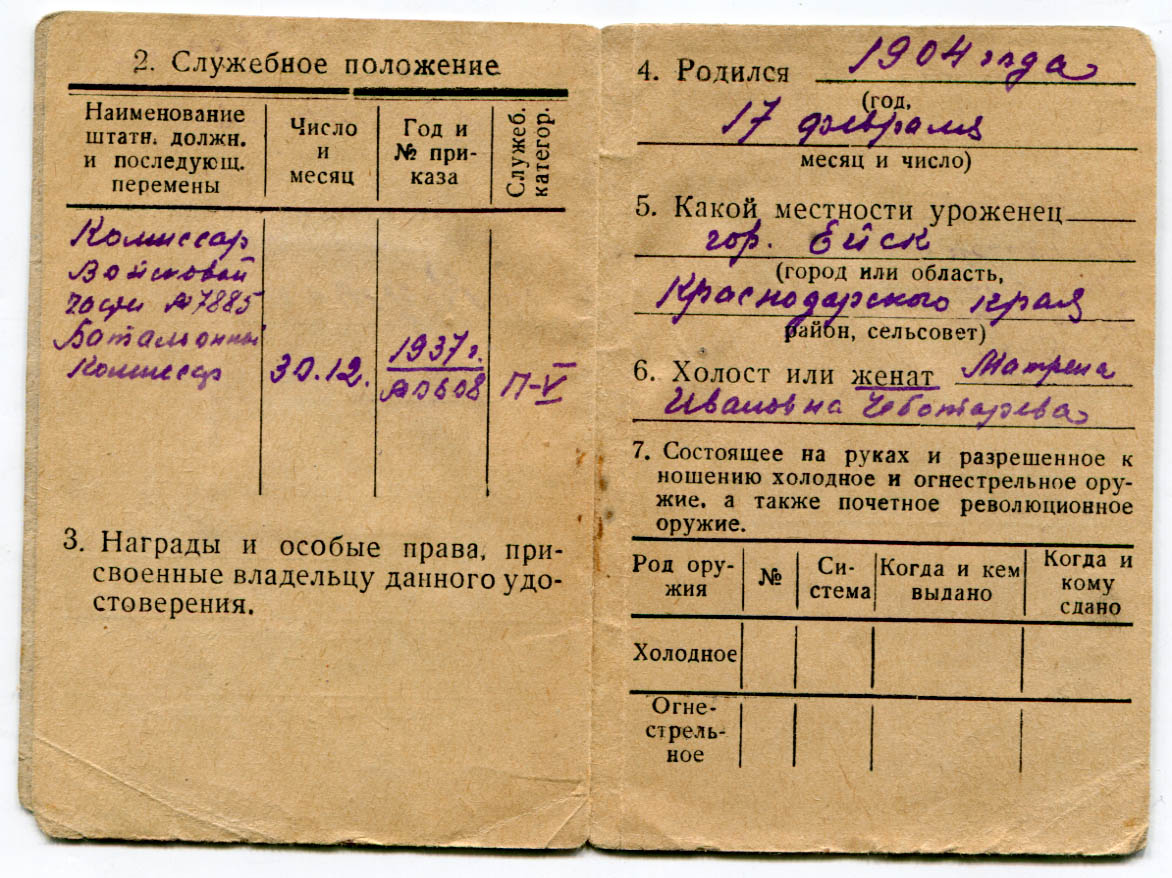 2. Служебное положение
Наименование
штатн. должн.
и последующ.
перемены
Число
и
месяц
Год и
№ при-
каза
Служеб.
категор.
Комиссар
Войсковой
части №7885
Батальонный
Комиссар
30.12.
1937г.
№0608
П-V
3. Награды и особые права, при-
своенные владельцу данного удо-
стоверения.
4. Родился 1904 года
(год,
17 февраля
месяц и число)
5. Какой местности уроженец
гор. Ейск
(город или область,
Краснодарского края
район, сельсовет)
6. Холост или женат Матрена
Ивановна Чеботарева
7. Состоящее на руках и разрешенное к
ношению холодное и огнестрельное ору-
жие, а также почетное революционное
оружие.
Род ору-
жия
№
Си-
стема
Когда и кем
выдано
Когда и
кому
сдано
Холодное
Огне-
стрель-
ное